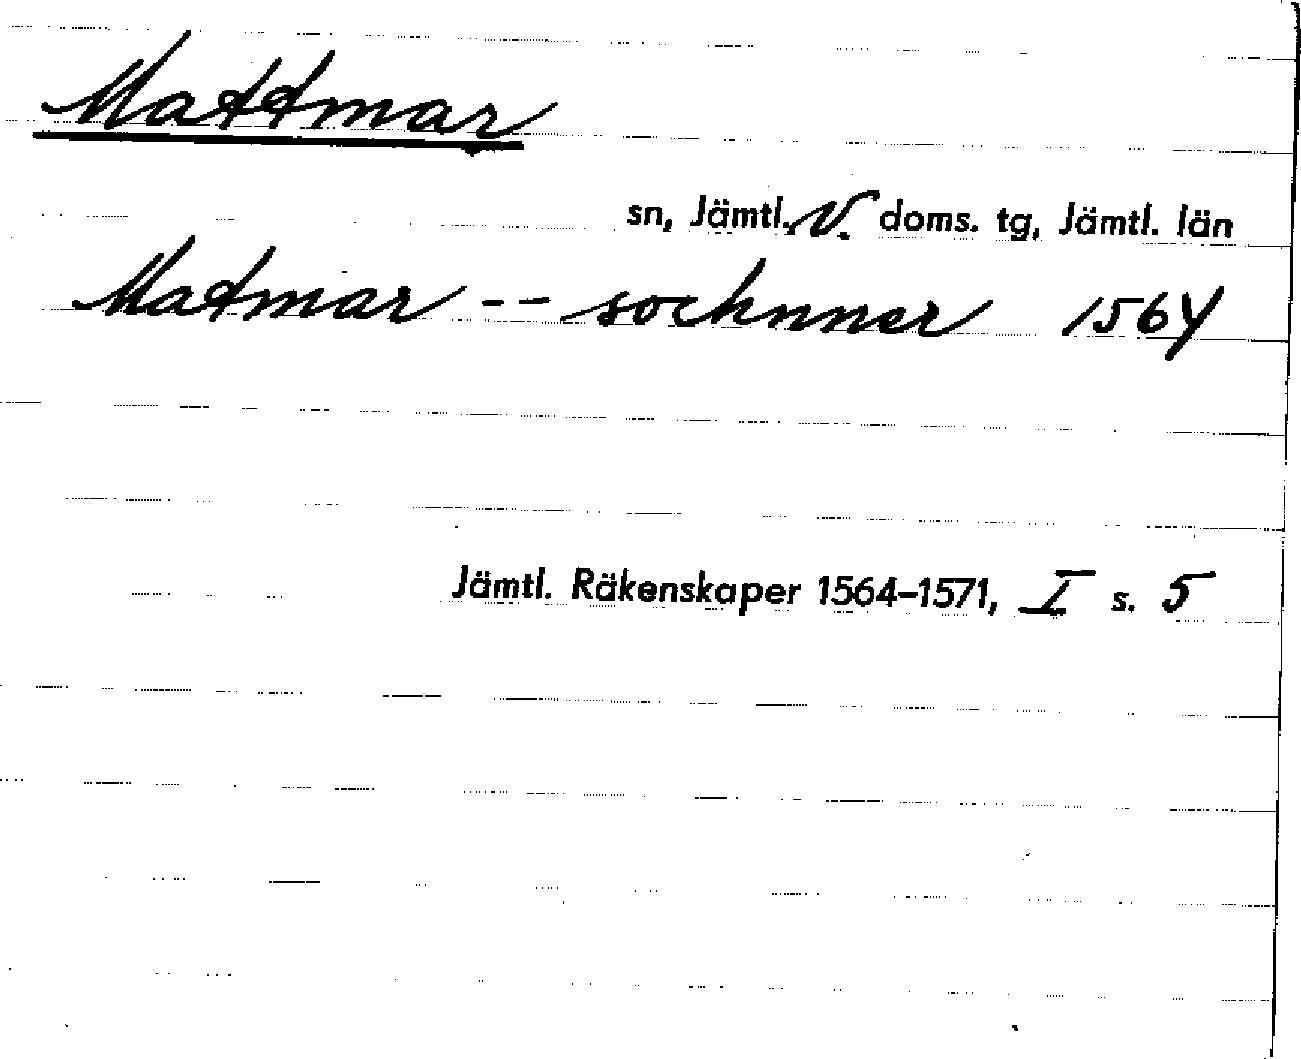 Mattmar
sn, Jämtl. V. doms. tg, Jämtl. län
Matmar -- sochnner 1564
Jämtl. Räkenskaper 1564-1571, I s. 5